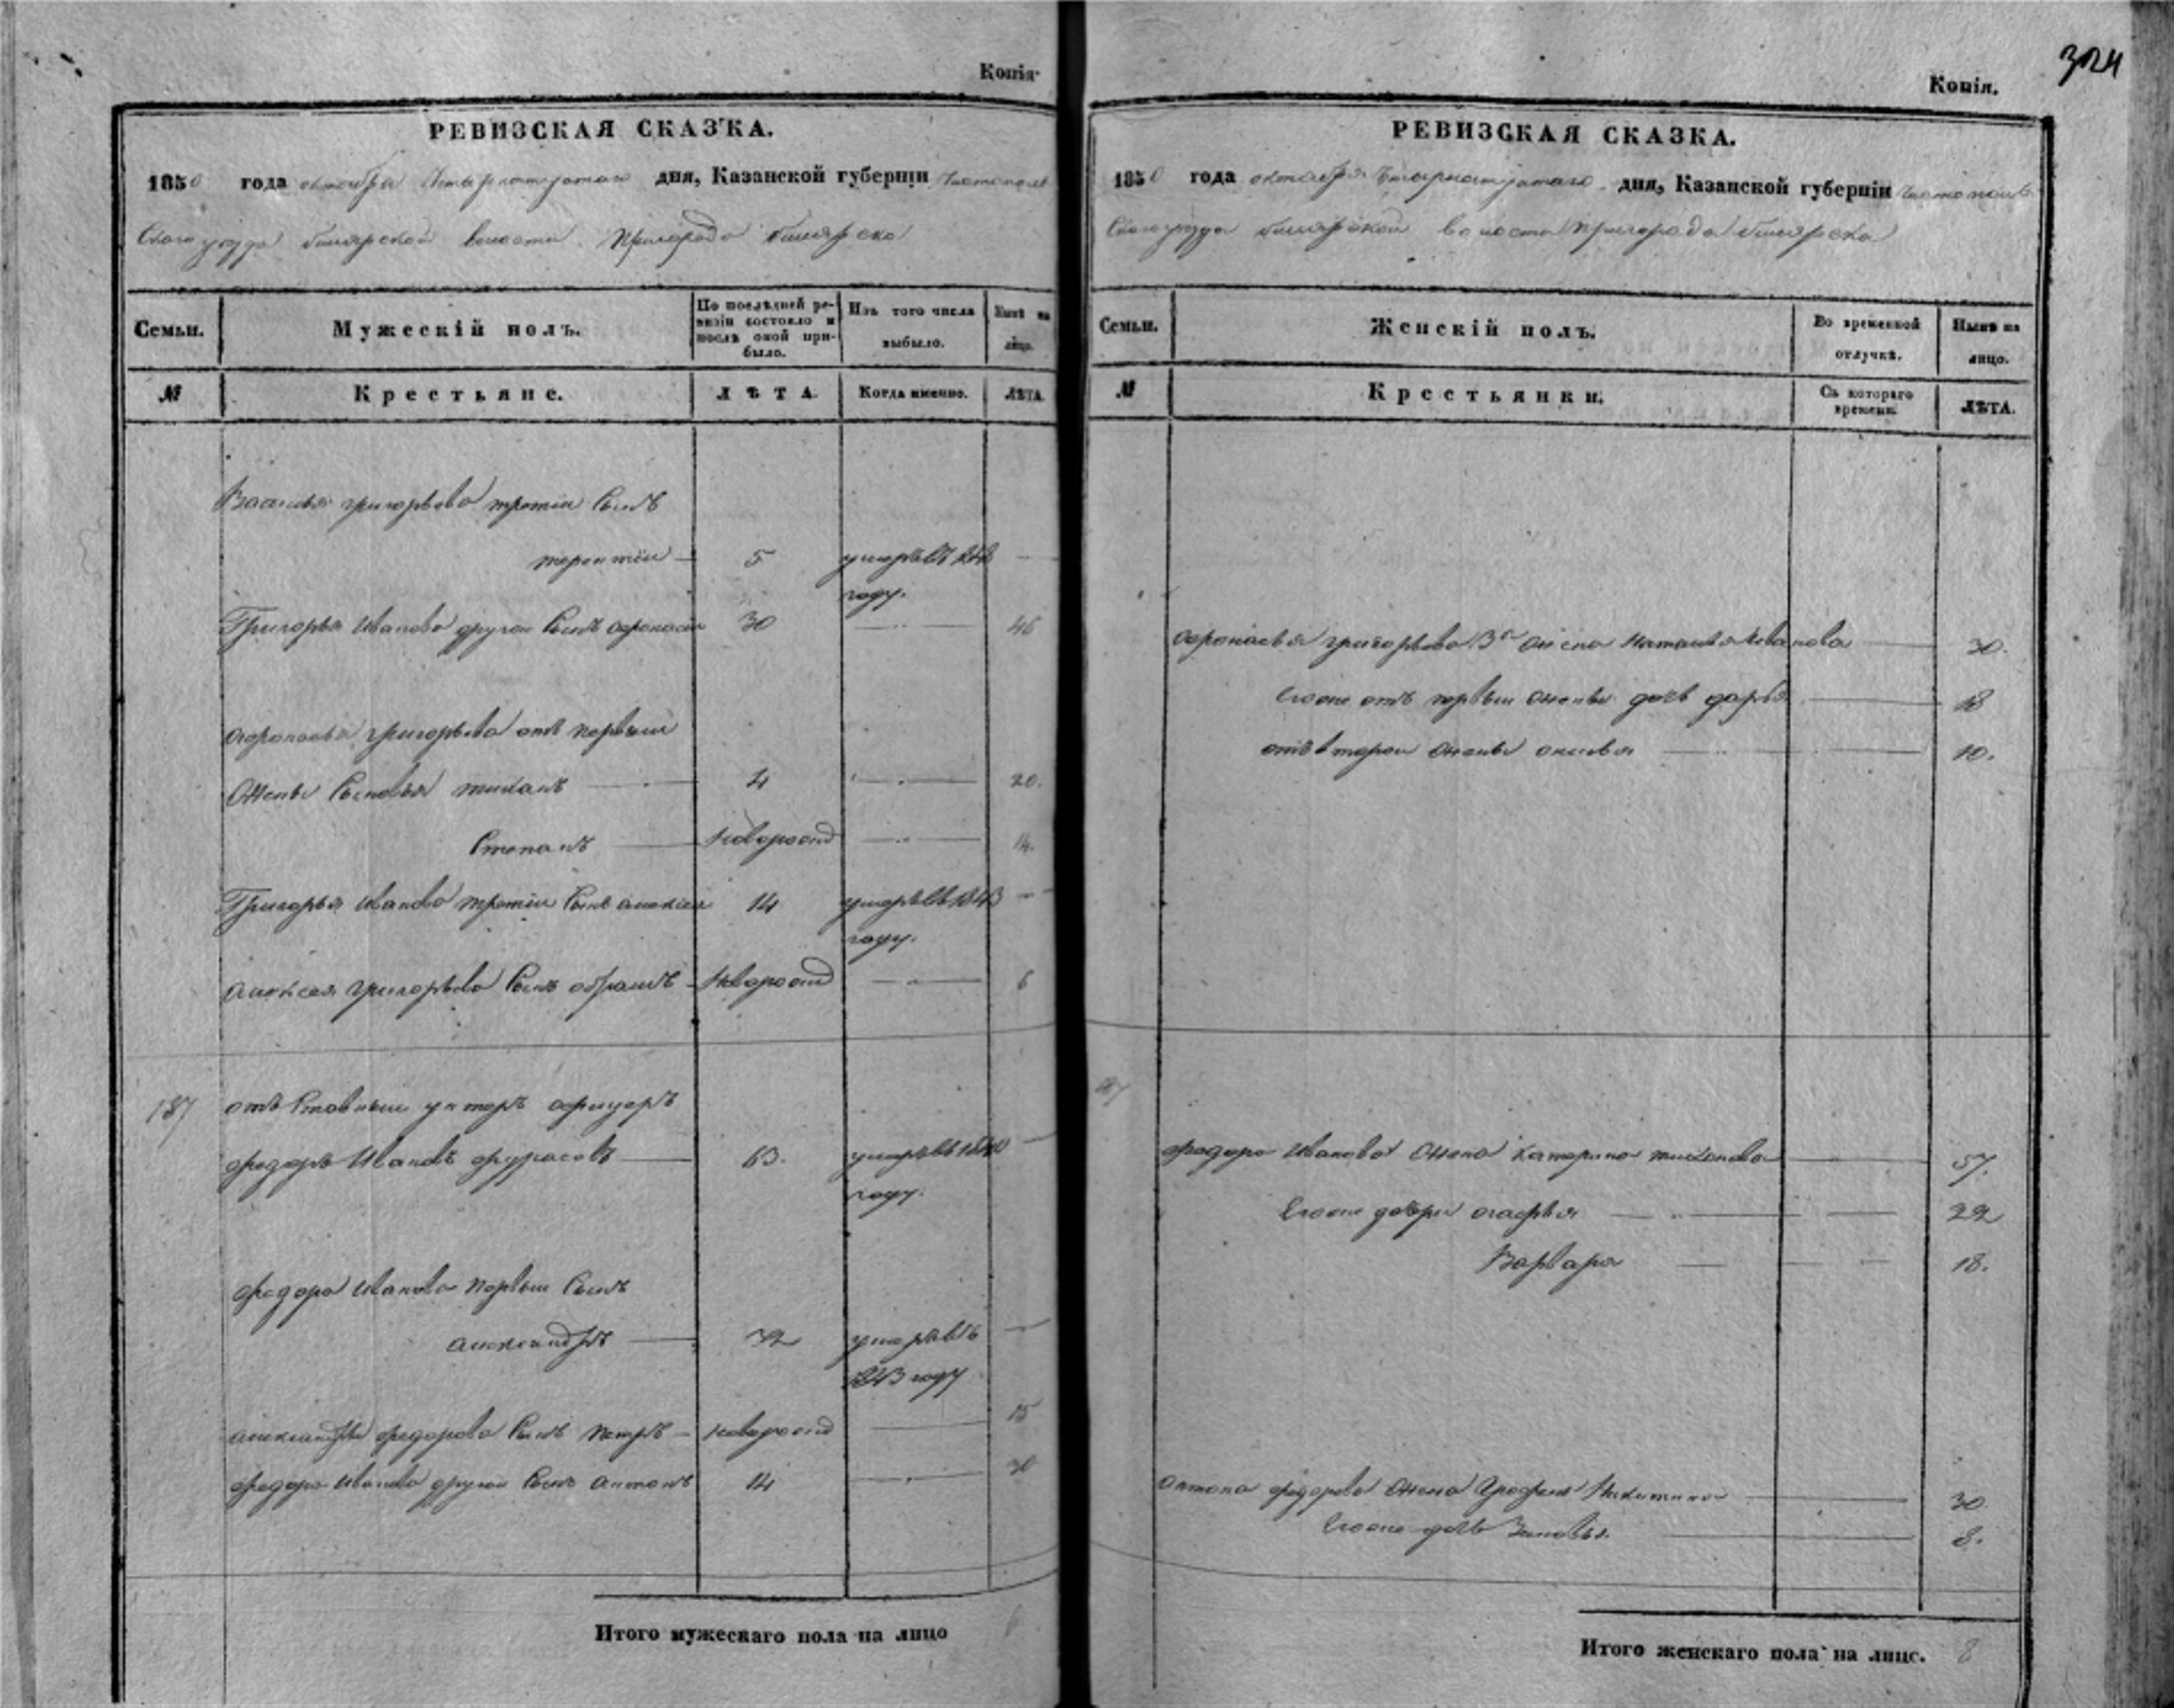 Копія
РЕВИЗСКАЯ СКАЗКА.
1850 года октября четырнатцатаго дня, Казанской губерніи Чистополь
скаго уезда билярской волости Пригорода билярска
Семьи.
Мужескій полъ.
По послѣдней ре-
визіи состояло и
послѣ оной при-
было.
Изъ того числа
выбыло.
Нынѣ на
лицо.
№
Крестьяне.
ЛѢТА.
Когда именно.
ЛѢТА.
Василья григорьева третіи сынъ
терентіи 5 умеръ въ 1842
году.
Григорья Иванова другои сынъ афонасіи 30 46
афонасья григорьева отъ первыи
жены сыновья тиханъ 4 20.
Степанъ новорожд 14.
Григорья Иванова третіи сынъ алексіи 14 умеръ въ 1843
году.
алексея григорьева сынъ абрамъ новорожд 6
187 отъставныи унтеръ афицеръ
федоръ Ивановъ 63. умеръ въ 1840
году.
федора Иванова первыи сынъ
александръ 32 умеръ въ
1843 году
александра федорова сынъ петръ новорожд 15
федора Иванова другои сынъ антонъ 14 30
Итого мужескаго пола на лицо 6
324
Копія.
РЕВИЗСКАЯ СКАЗКА.
1850 года октября четырнатцатаго дня, Казанской губерніи Чистополь
скаго уезда билярской волости пригорода билярска
Семьи.
Женскій полъ.
Во временной
отлучкѣ.
Нынѣ на
лицо.
№
Крестьянки.
Съ котораго
времени.
ЛѢТА.
афонасья григорьева 2я жена Наталья Иванова 30.
Егоже отъ первыи жены дочь дарья 18
отъ второи жены 10.
187
федора Иванова жена катерина тиханова 57.
Егоже дочери агафья 22
Варвара 18.
антона федорова жена Никитина 30
Егоже дочь Зиновья 8.
Итого женскаго пола на лицо. 8